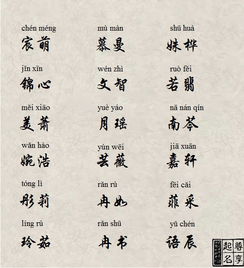 chén méng mù màn shū huà
宸萌 慕曼 姝桦
jǐn xīn wén zhì ruò fěi
锦心 文智 若翡
měi xiāo yuè yáo nā nán qín
美萧 月瑶 南芩
wǎn hào yún wēi jiā xuān
婉浩 芸薇 嘉轩
tóng lì rǎn rù fēi cǎi
彤莉 冉如 菲采
líng rú rǎn shū yǔ chén
玲茹 冉书 语辰
起名